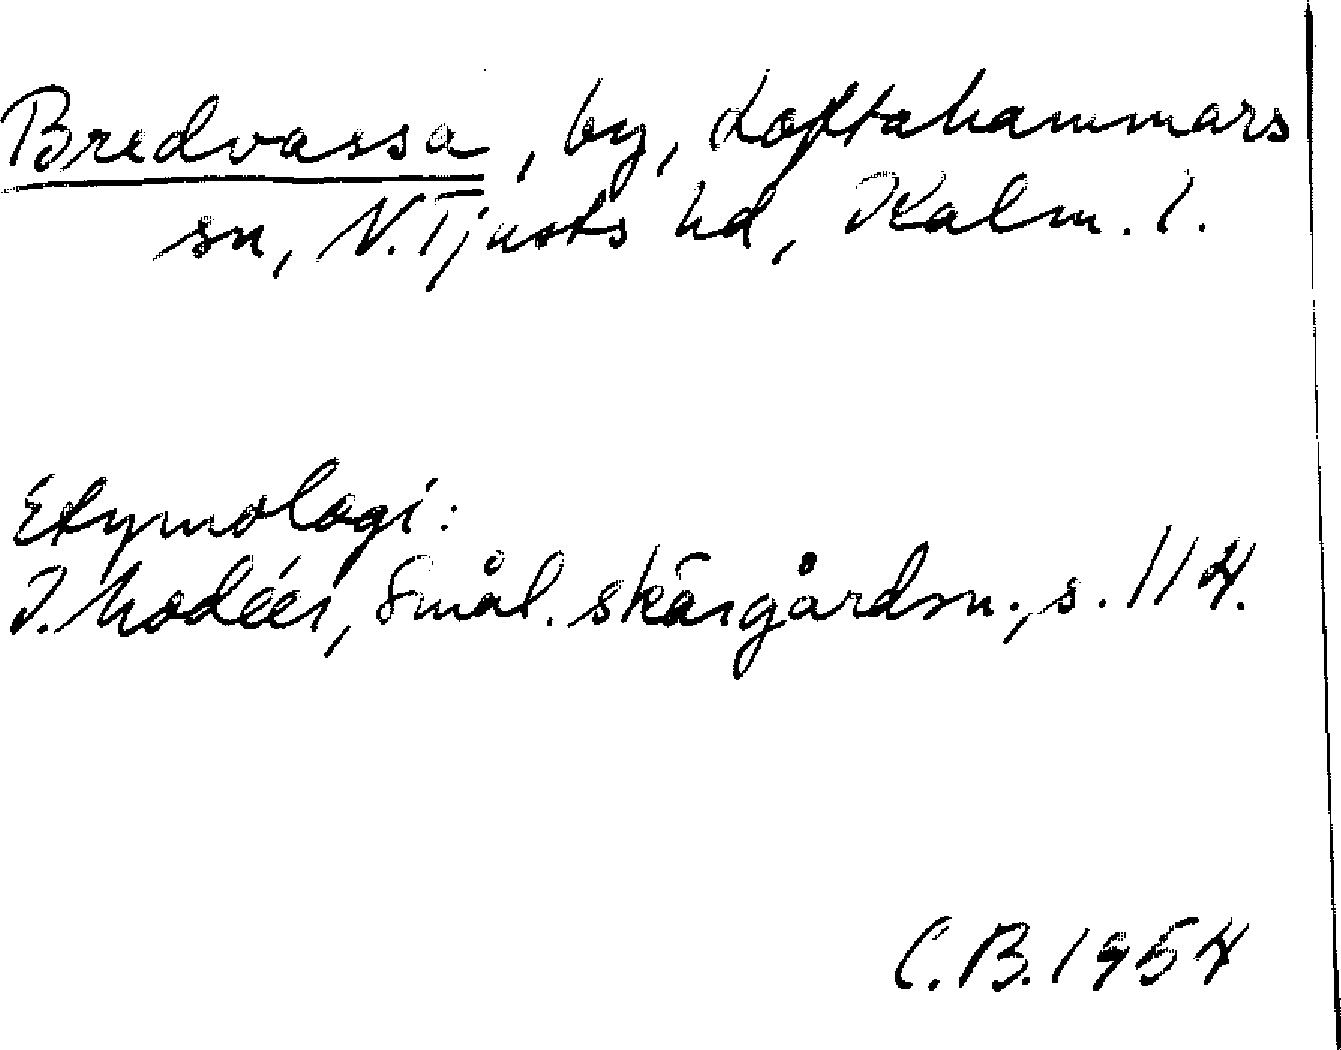 Bredvassa, by, Loftahammars
sn, N. Tjusts hd, Kalm. l.
Etymologi:
I. Modéer, Smål. skärgårdsn., s. 114.
C.B. 1954